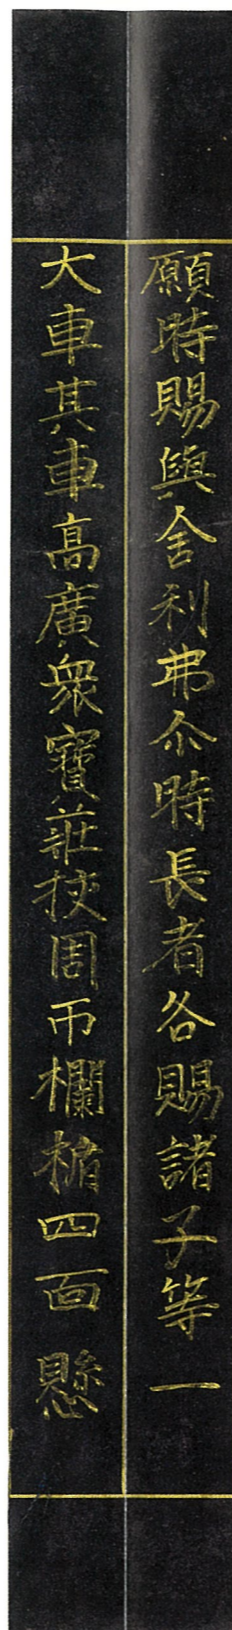 願時賜與舎利弗尒時長者各賜諸子等一
大車其車髙廣衆寳莊挍周帀欄楯四面懸